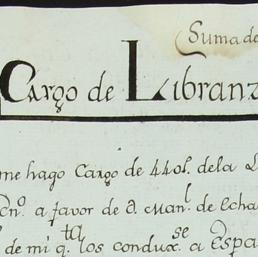 Suma de
Cargo de Libranz
me hago Cargo de 440l. de la L
no. a favor de D. Manl. de Echa
de mi qta los conduxse. a Espa